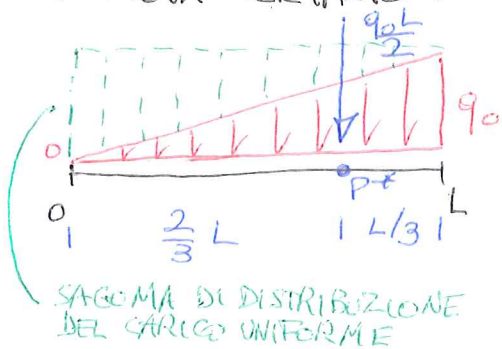 q₀L
2
0
q₀
P*
0
L
2
3
L
L/3
SAGOMA DI DISTRIBUZIONE
DEL CARICO UNIFORME